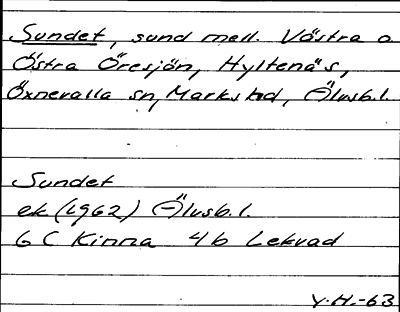 Sundet, sund mell. Västra o
Östra Öresjön, Hyltenäs,
Öxnevalla sn, Marks hd, Älvsb.l.
Sundet
ek (1962) Älvsb.l.
6 C Kinna 4b Lekvad
Y.H.-63